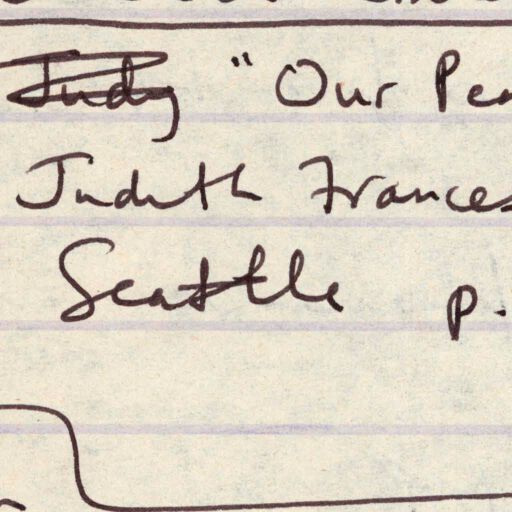 Judy "Our Pea
Judith Frances
Seattle p.